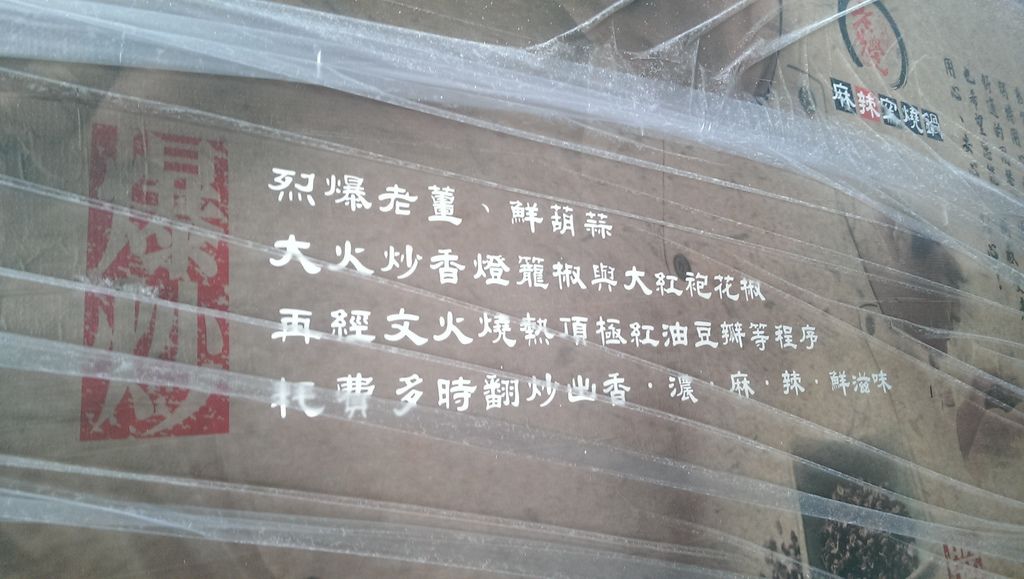 爆炒
烈爆老薑、鮮葫蒜
大火炒香燈籠椒與大紅袍花椒
再經文火燒熱頂極紅油豆瓣等程序
耗費多時翻炒出香·濃·麻·辣·鮮滋味
麻辣窯燒鍋
用心